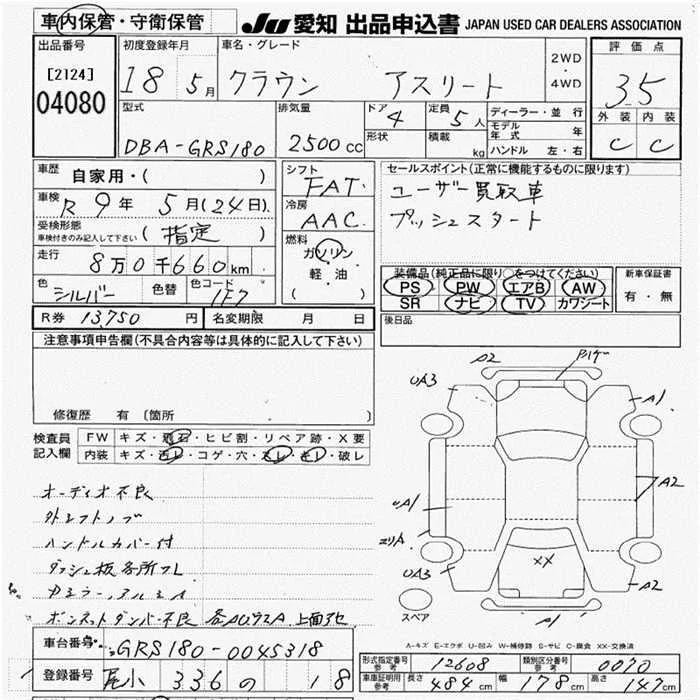 車内保管・守衛保管
JU 愛知 出品申込書 JAPAN USED CAR DEALERS ASSOCIATION
出品番号
[2124]
04080
初度登録年月
18 5月
車名・グレード
クラウン アスリート
2WD
・
4WD
評価点
3.5
外装 内装
C C
型式
DBA-GRS180
排気量
2500cc
ドア
4
形状
定員
5人
積載
kg
ディーラー・並行
モデル年式 年
ハンドル 左・右
車歴
自家用・( )
車検
R 9年 5月(24日)
受検形態
車検付きのみ記入して下さい
(指定)
走行
8万0千660km
色
シルバー
色替
色コード
1F7
シフト
FAT
冷房
AAC
燃料
ガソリン
軽・油
( )
セールスポイント(正常に機能するものに限ります)
ユーザー買取車
プッシュスタート
装備品(純正品に限り○をつけてください)
PS PW エアB AW
SR ナビ TV カワシート
新車保証書
有・無
後日品
R券 13,750円
名変期限 月 日
注意事項申告欄(不具合内容等は具体的に記入して下さい)
修復歴 有 〔箇所 〕
検査員
記入欄
FW キズ・飛石・ヒビ割・リペア跡・X要
内装 キズ・汚レ・コゲ・穴・スレ・キレ・破レ
オーディオ不良
外シフトノブ
ハンドルカバー付
ダッシュ板各所フレ
ボンネットダンパー不良 各AUウスA
A2
UA3
A1
A2
UA1
XX
UA3
A2
A1
スペア
A-キズ E-エクボ U-凹み W-補修跡 S-サビ C-腐食 XX-交換済
車台番号
GRS180-0045318
登録番号
尾小 336 の 18
形式指定番号
参考
12608
類別区分番号
参考
0070
車庫証明用
参考
長さ
484cm
幅
178cm
高さ
147cm